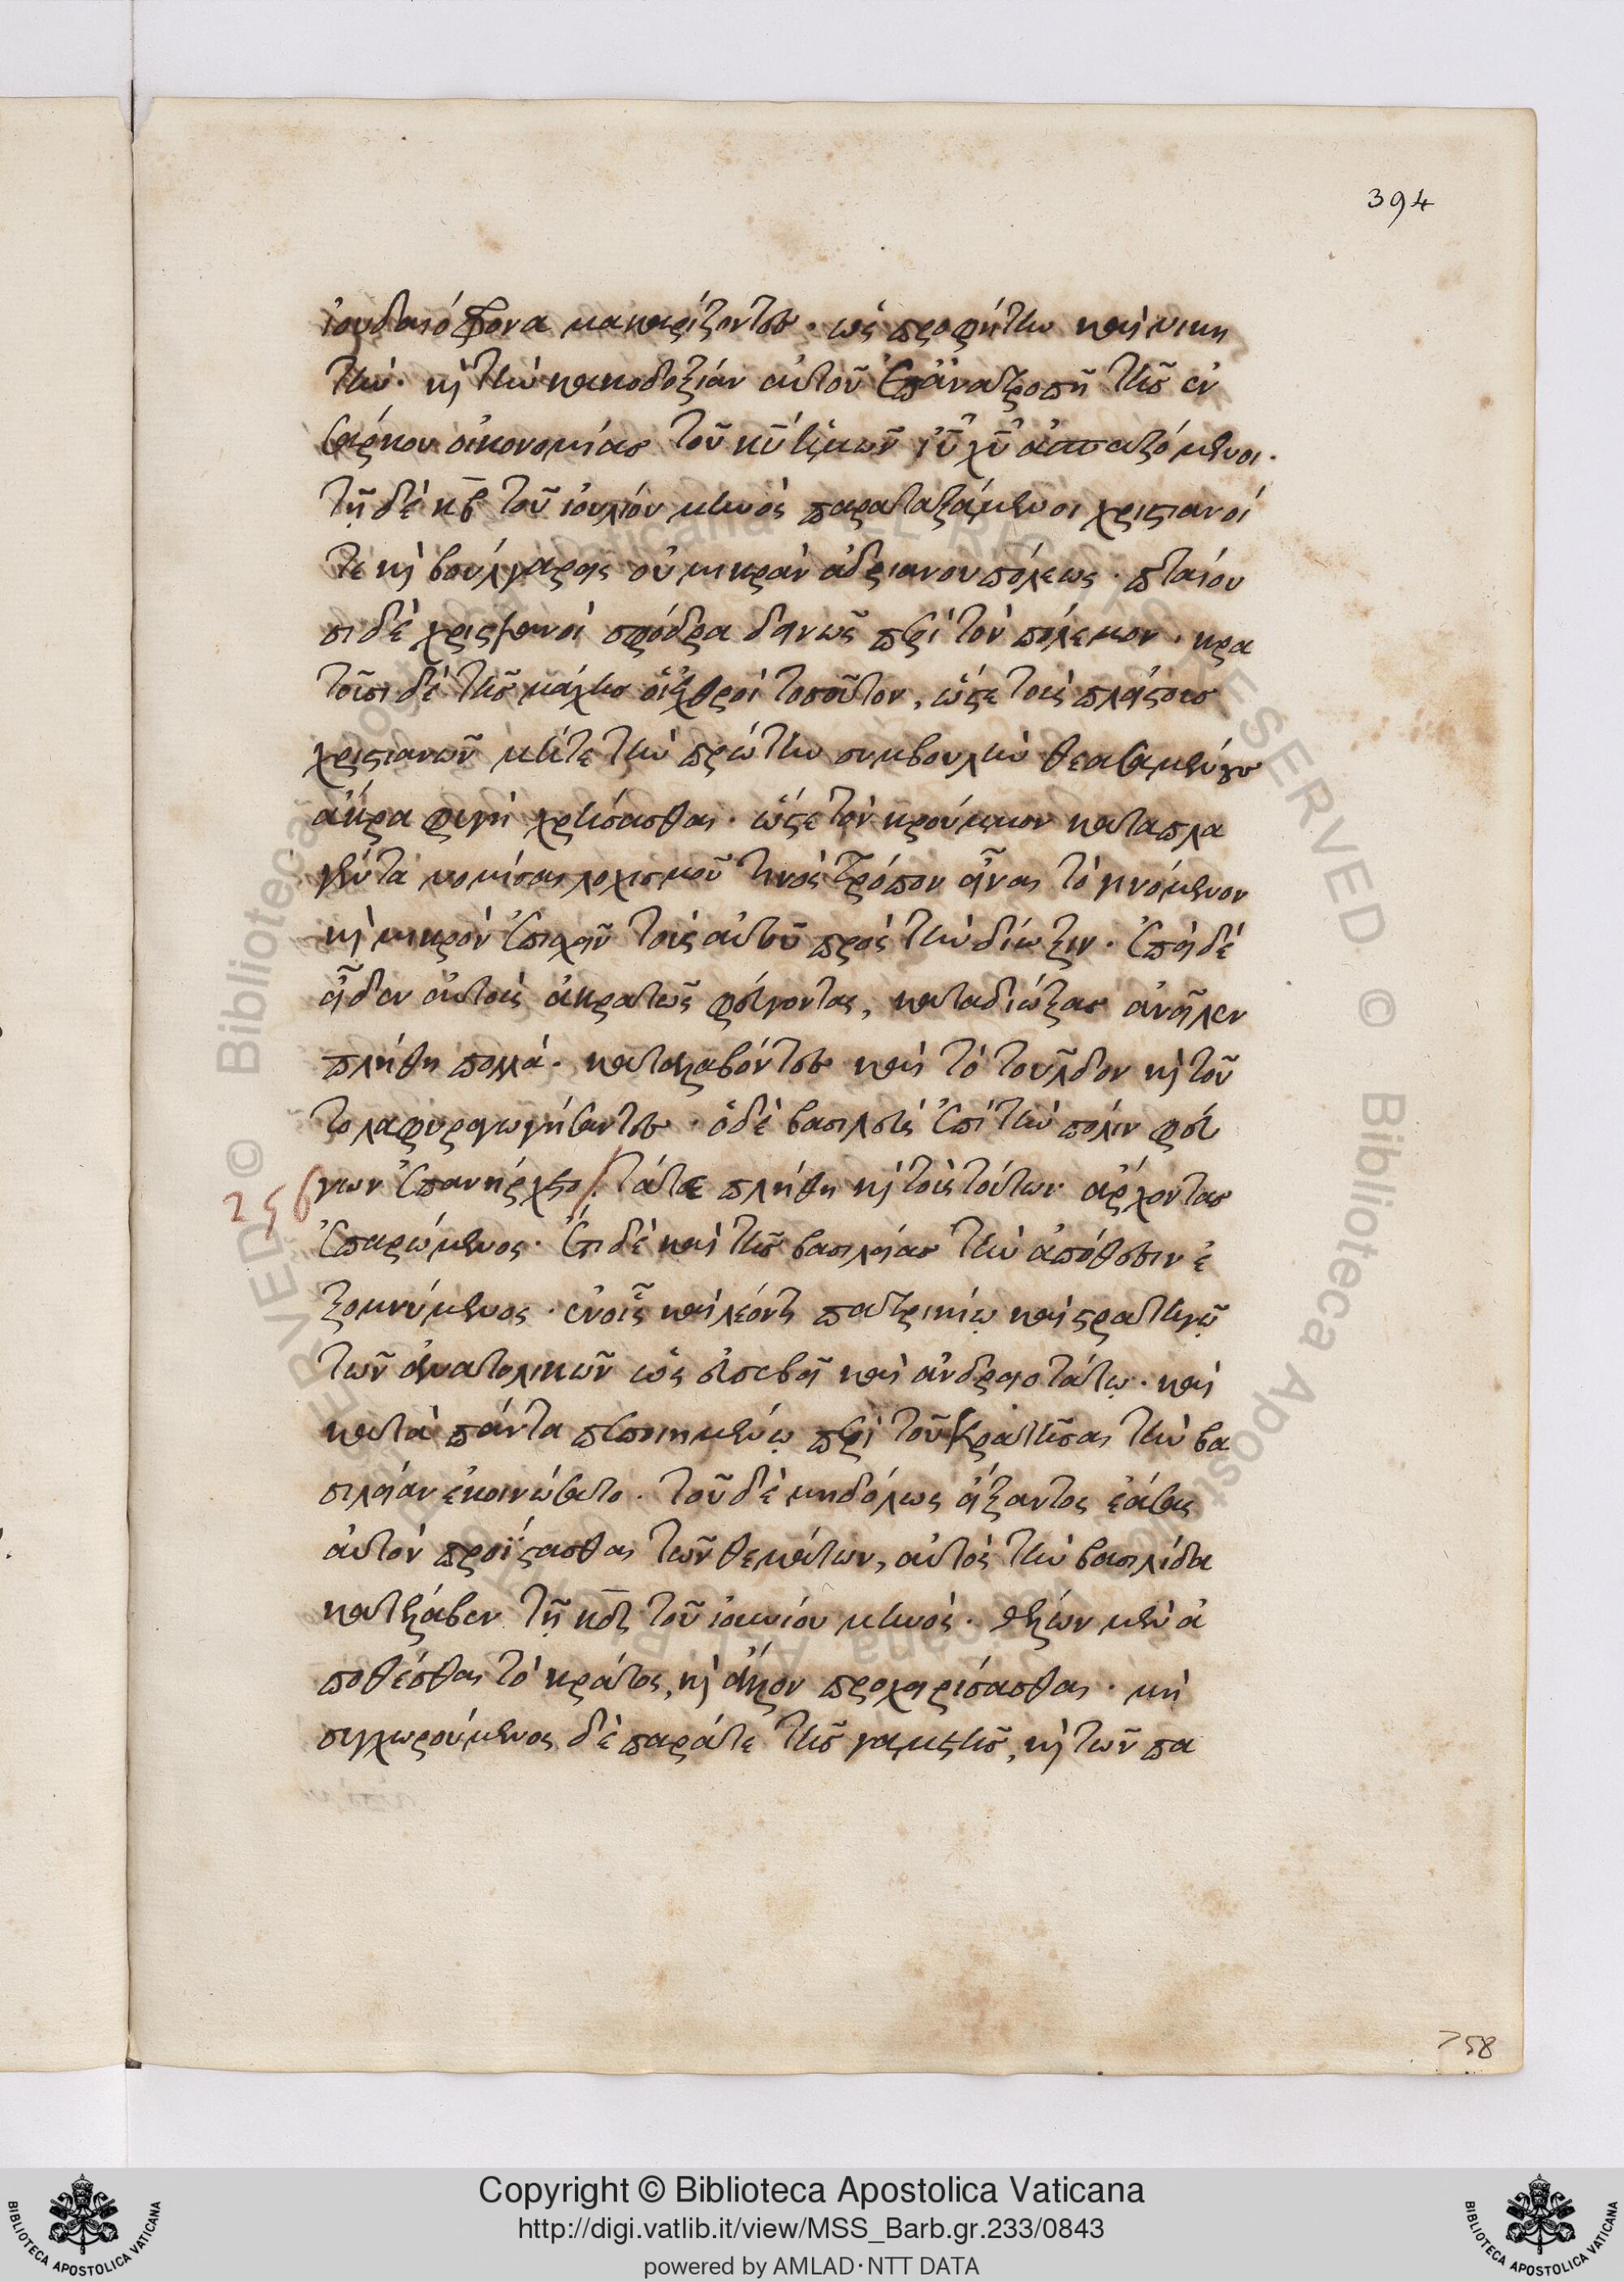 394
ἰουδαιόφρονα μακαρίζοντες· ὡς προφήτην καὶ νικη
τήν· καὶ τὴν κακοδοξίαν αὐτοῦ ἐπ' ἀνατροπῇ τῆς ἐν
σάρκου οἰκονομίας τοῦ κυ ἡμῶν ιυ χυ ἀσπαζόμενοι·
τῇ δὲ κβ τοῦ ἰουλίου μηνὸς παραταξάμενοι χριστιανοί
τε καὶ βουλγαρεις οὐ μικρὰν ἀδριανουπόλεως· πταίου
σι δὲ χριστιανοὶ σφόδρα δεινῶς περὶ τὸν πόλεμον· κρα
τοῦσι δὲ τῆς μάχης οἱ ἐχθροὶ τοσοῦτον, ὥστε τοὺς πλείστους
χριστιανῶν μήτε τὴν πρώτην συμβουλὴν θεασαμένους
ἄκρα φυγῇ χρήσασθαι· ὥστε τὸν κρούμμον καταπλα
γέντα νομίσαι λοχισμοῦ τινὸς τρόπον εἶναι τὸ γινόμενον
καὶ μικρὸν ἐπισχεῖν τοὺς αὐτοῦ πρὸς τὴν δίωξιν· ἐπεὶ δὲ
εἶδεν αὐτοὺς ἀκρατῶς φεύγοντας, καταδιώξας ἀνεῖλεν
πλήθη πολλά· καταλαβόντες καὶ τὸ τοῦλδον καὶ τοῦ
το λαφυραγωγήσαντες· ὁ δὲ βασιλεὺς ἐπὶ τὴν πόλιν φεύ
256 γων ἐπανήρχετο/. τάτε πλήθη καὶ τοὺς τούτων ἄρχοντας
ἐπαρώμενος· ἔτι δὲ καὶ τῆς βασιλείας τὴν ἀπόθεσιν ἐ
ξομνύμενος· ἐν οἷς καὶ λέοντι πατρικίῳ καὶ στρατηγῷ
τῶν ἀνατολικῶν ὡς εὐσεβεῖ καὶ ἀνδρειοτάτῳ· καὶ
κατὰ πάντα πεποιημένῳ περὶ τοῦ κρατῆσαι τὴν βα
σιλείαν ἐκοινώσατο· τοῦ δὲ μηδόλως εἴξαντος ἐάσας
αὐτὸν προΐστασθαι τῶν θεμάτων, αὐτὸς τὴν βασιλίδα
κατέλαβεν τῇ κδ τοῦ ἰουνίου μηνὸς· θέλων μὲν ἀ
ποθέσθαι τὸ κράτος, καὶ ἄλλον προχειρίσασθαι· μὴ
συγχωρούμενος δὲ παρά τε τῆς γαμετῆς, καὶ τῶν πα
758
Copyright © Biblioteca Apostolica Vaticana
http://digi.vatlib.it/view/MSS_Barb.gr.233/0843
powered by AMLAD·NTT DATA